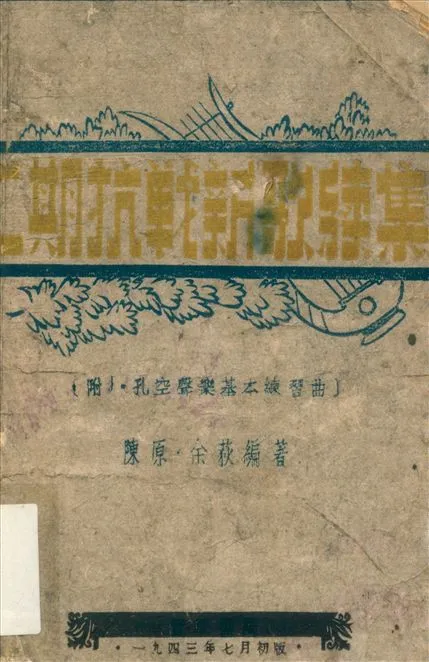 二期抗戰新歌續集
〔附J·孔空聲樂基本練習曲〕
陳原·余荻編著
·一九四三年七月初版·